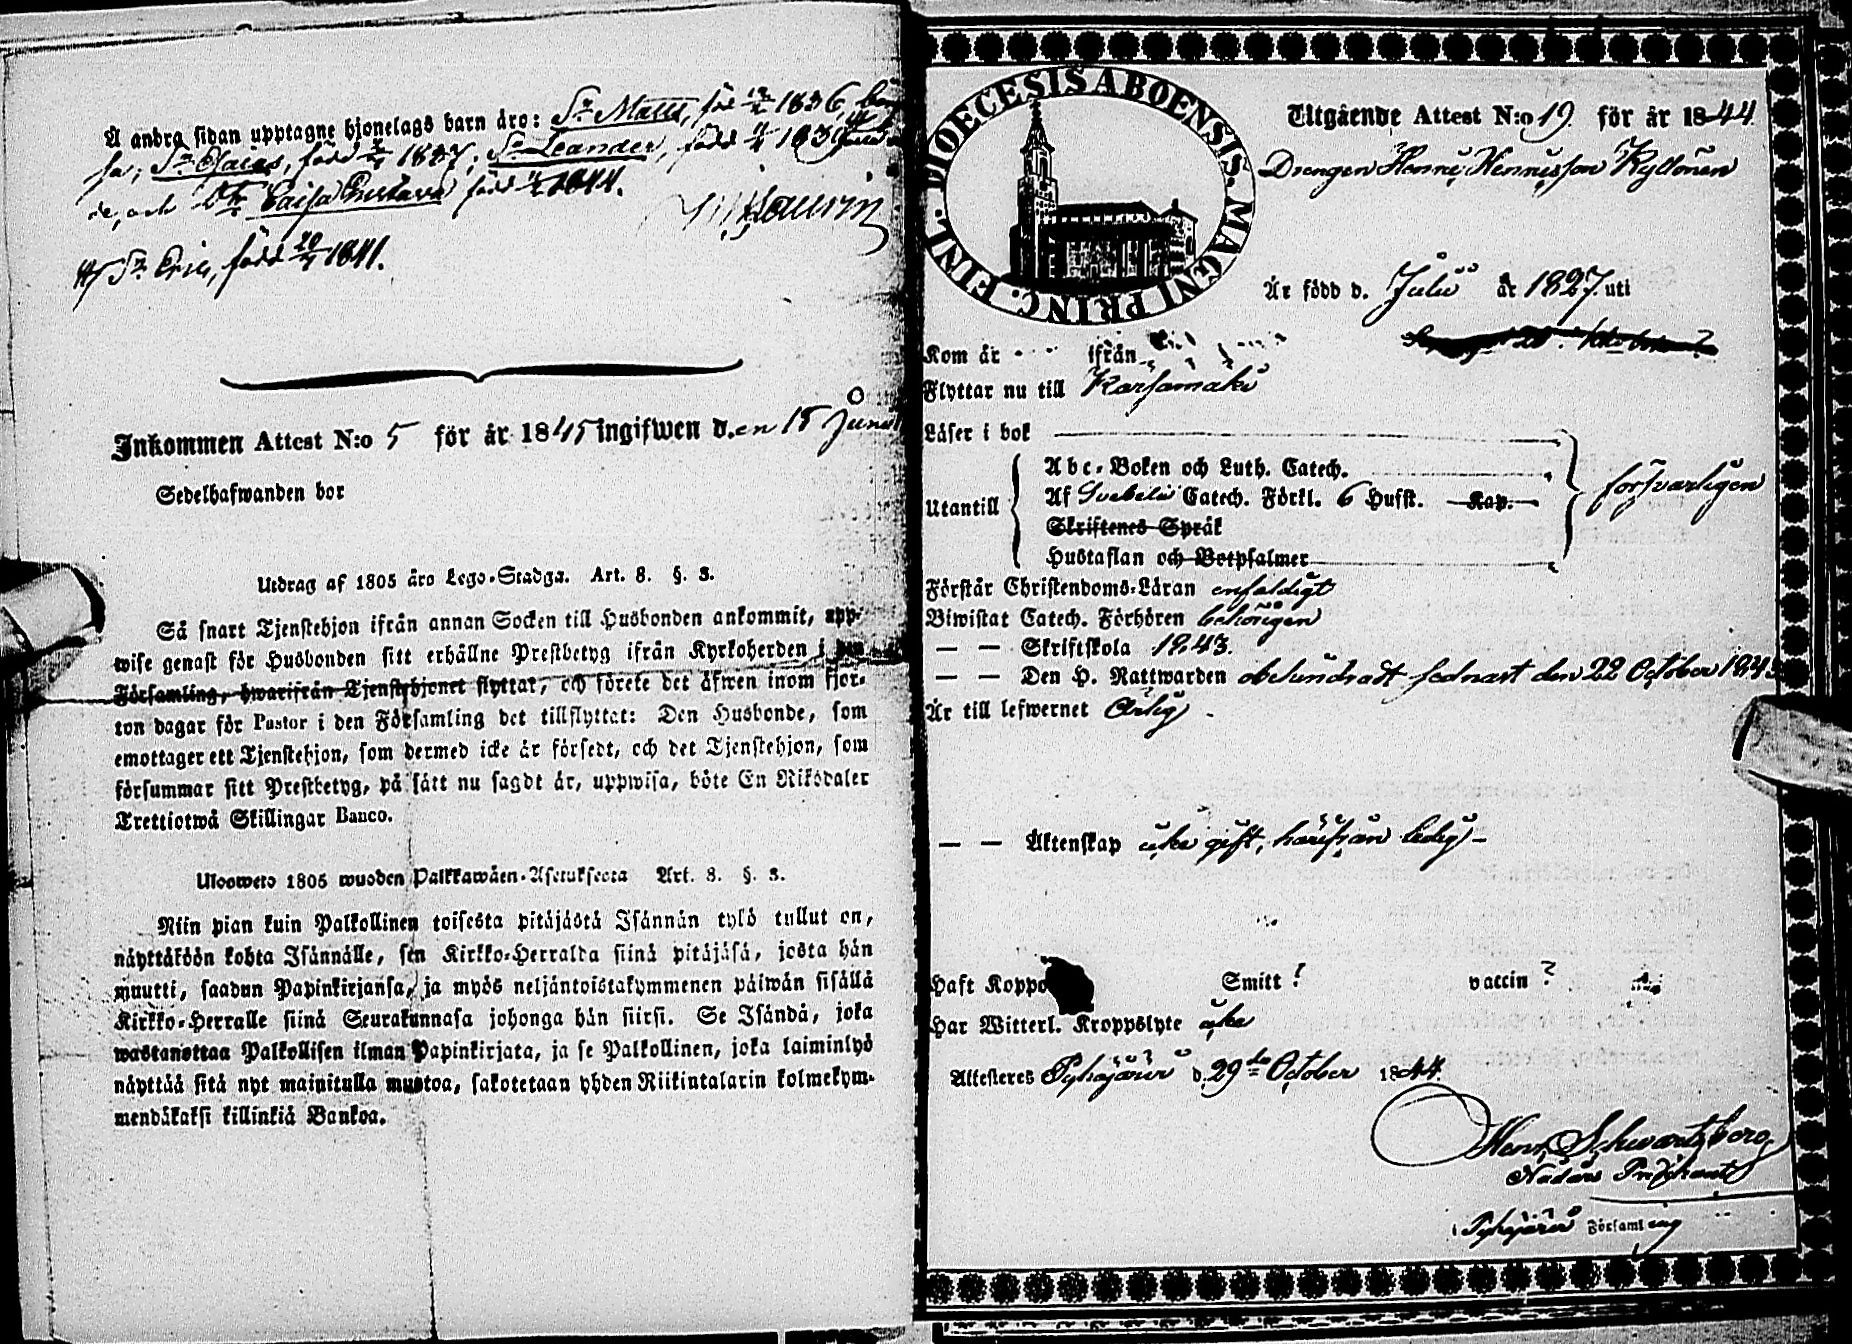 Å andra sidan upptagne hjonelags barn äro: Sn Matts, född 1836,
Sn Esaias, född 1837; Sn Leander, född 1839
och Dtr Caisa Gustava född 1844.
Sn Eric, född 20/ 1841.
Inkommen Attest N:o 5 för år 1845 ingifwen d.en 15 Juni
Sedelhafwanden bor
Utdrag af 1805 års Lego-Stadga. Art. 8. §. 3.
Så snart Tjenstehjon ifrån annan Socken till Husbonden ankommit, upp-
wise genast för Husbonden sitt erhållne Prestbetyg ifrån Kyrkoherden i den
Församling, hwarifrån Tjenstehjonet flyttat, och förete det äfwen inom fjor-
ton dagar för Pastor i den Församling det tillflyttat: Den Husbonde, som
emottager ett Tjenstehjon, som dermed icke är försedt, och det Tjenstehjon, som
försummar sitt Prestbetyg, på sätt nu sagdt är, uppwisa, böte En Riksdaler
Trettiotwå Skillingar Banco.
Ulosweto 1805 wuoden Palkkawäen-Asetuksesta Art. 8. §. 3.
Niin pian kuin Palkollinen toisesta pitäjästä Isännän tykö tullut on,
näyttäköön kohta Isännälle, sen Kirkko-Herralda siinä pitäjäsä, josta hän
muutti, saadun Papinkirjansa, ja myös neljäntoistakymmenen päiwän sisällä
Kirkko-Herralle siinä Seurakunnasa johonga hän siirsi. Se Isändä, joka
wastanottaa Palkollisen ilman Papinkirjata, ja se Palkollinen, joka laiminlyö
näyttää sitä nyt mainitulla muotoa, sakotetaan yhden Riikintalarin kolmekym-
mendäkaksi killinkiä Bankoa.
DIOECESIS ABOENSIS. MAGNI PRINC. FINL.
Utgående Attest N:o 19 för år 1844
Drengen Henric Henricsson Kyllönen
Är född d. Julii år 1827 uti
Kom år ifrån
Flyttar nu till Karsamäki
Läser i bok
Utantill
Abc-Boken och Luth. Catech.
Af Svebelii Catech. Förkl. 6 Hufst. Kap.
Skriftenes Språk
Hustaflan och Botpsalmer
försvarligen
Förstår Christendoms-Läran enfaldigt
Biwistat Catech. Förhören behörigen
— — Skriftskola 1843.
— — Den H. Nattwarden obehindradt sednast den 22 October 1843
Är till lefwernet Ärlig.
— — Äktenskap icke gift, härifrån ledig –
Haft Koppor Smitt ? vaccin ?
Har Witterl. Kroppslyte icke
Attesteres Pyhäjärvi d. 29de October 1844.
Henr. Schwartzberg
Nådårs Predikant
i Pyhäjärvi Församling